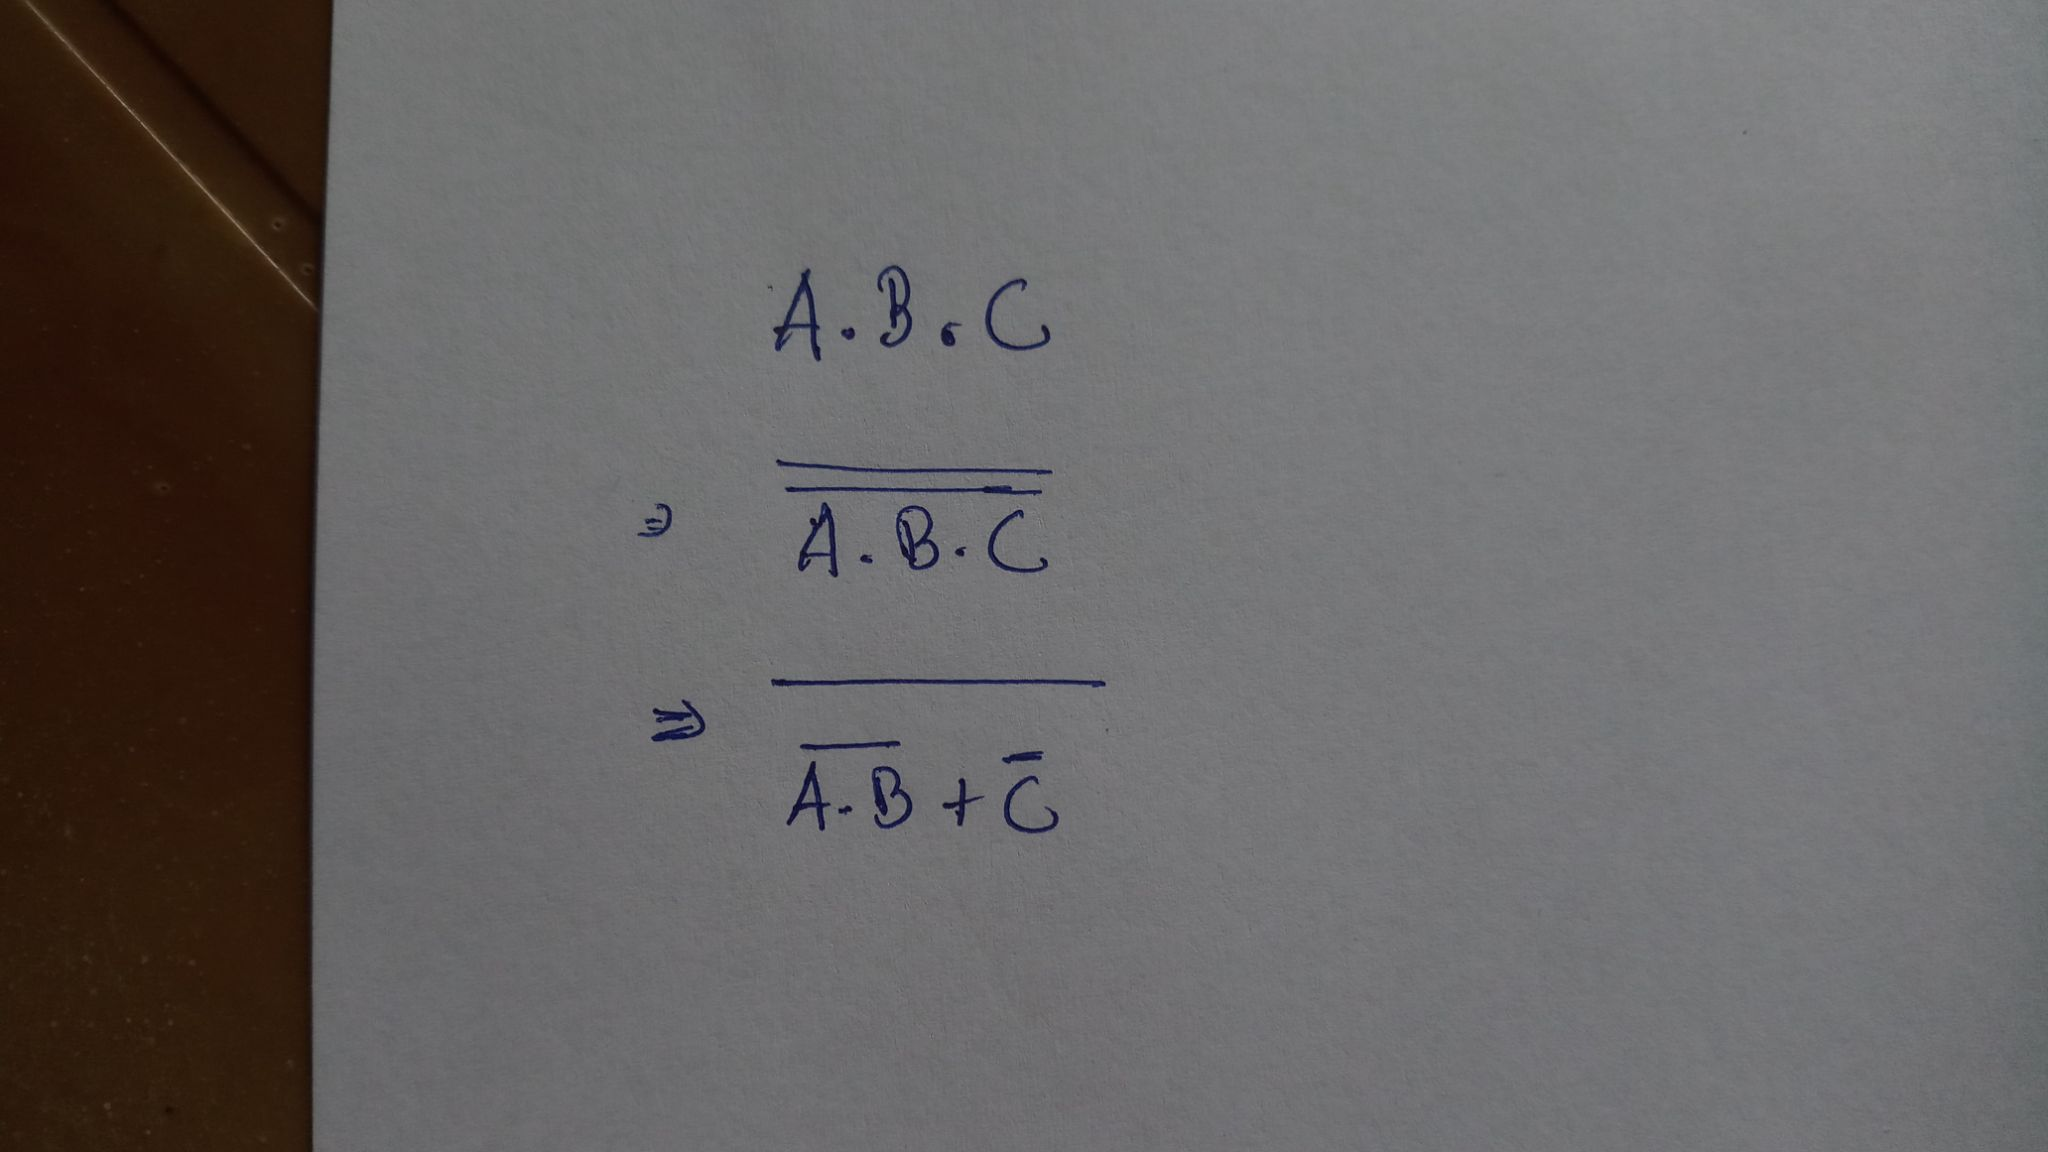 A . B . C
⇒ \overline{\overline{A . B . C}}
⇒ \overline{\overline{A . B} + \overline{C}}